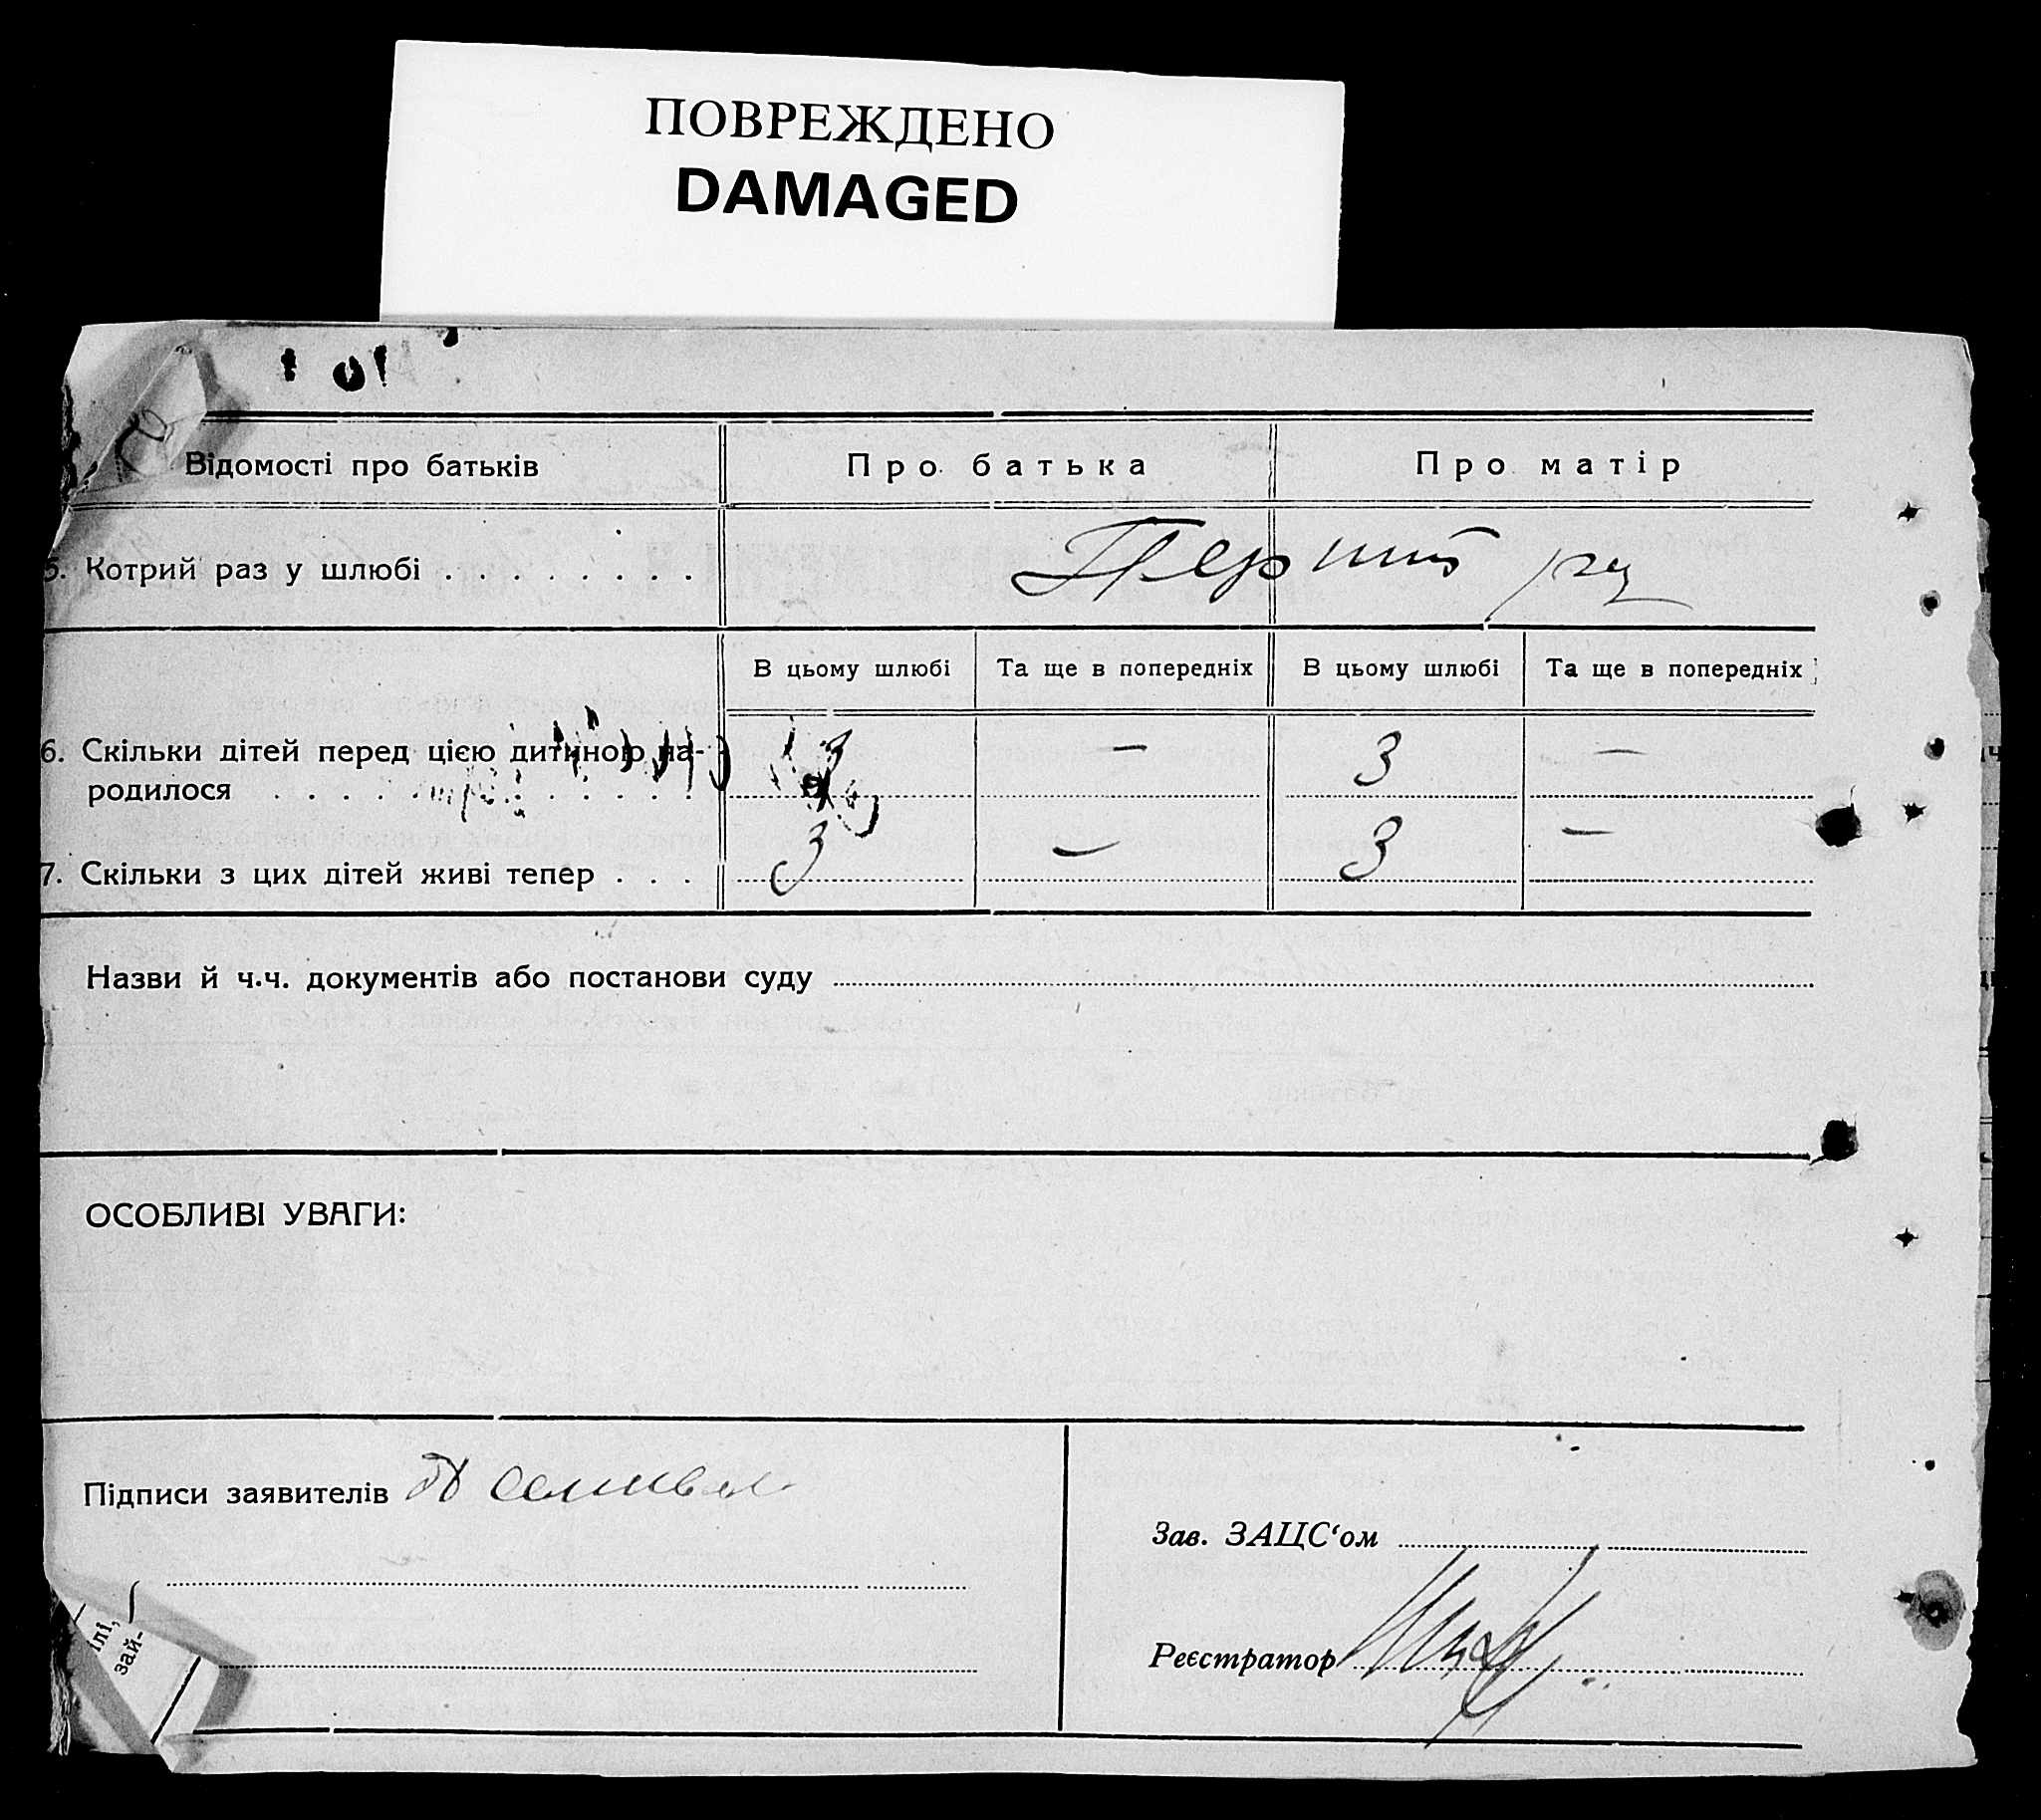 ПОВРЕЖДЕНО
DAMAGED
Відомості про батьків Про батька Про матір
5. Котрий раз у шлюбі . . . . . . . . Перший раз
В цьому шлюбі Та ще в попередніх В цьому шлюбі Та ще в попередніх
6. Скільки дітей перед цією дитиною на-
родилося 3 — 3 —
7. Скільки з цих дітей живі тепер . . . 3 — 3 —
Назви й ч.ч. документів або постанови суду
ОСОБЛИВІ УВАГИ:
Підписи заявителів
Зав. ЗАЦС‘ом
Реєстратор
ілі,
зай-